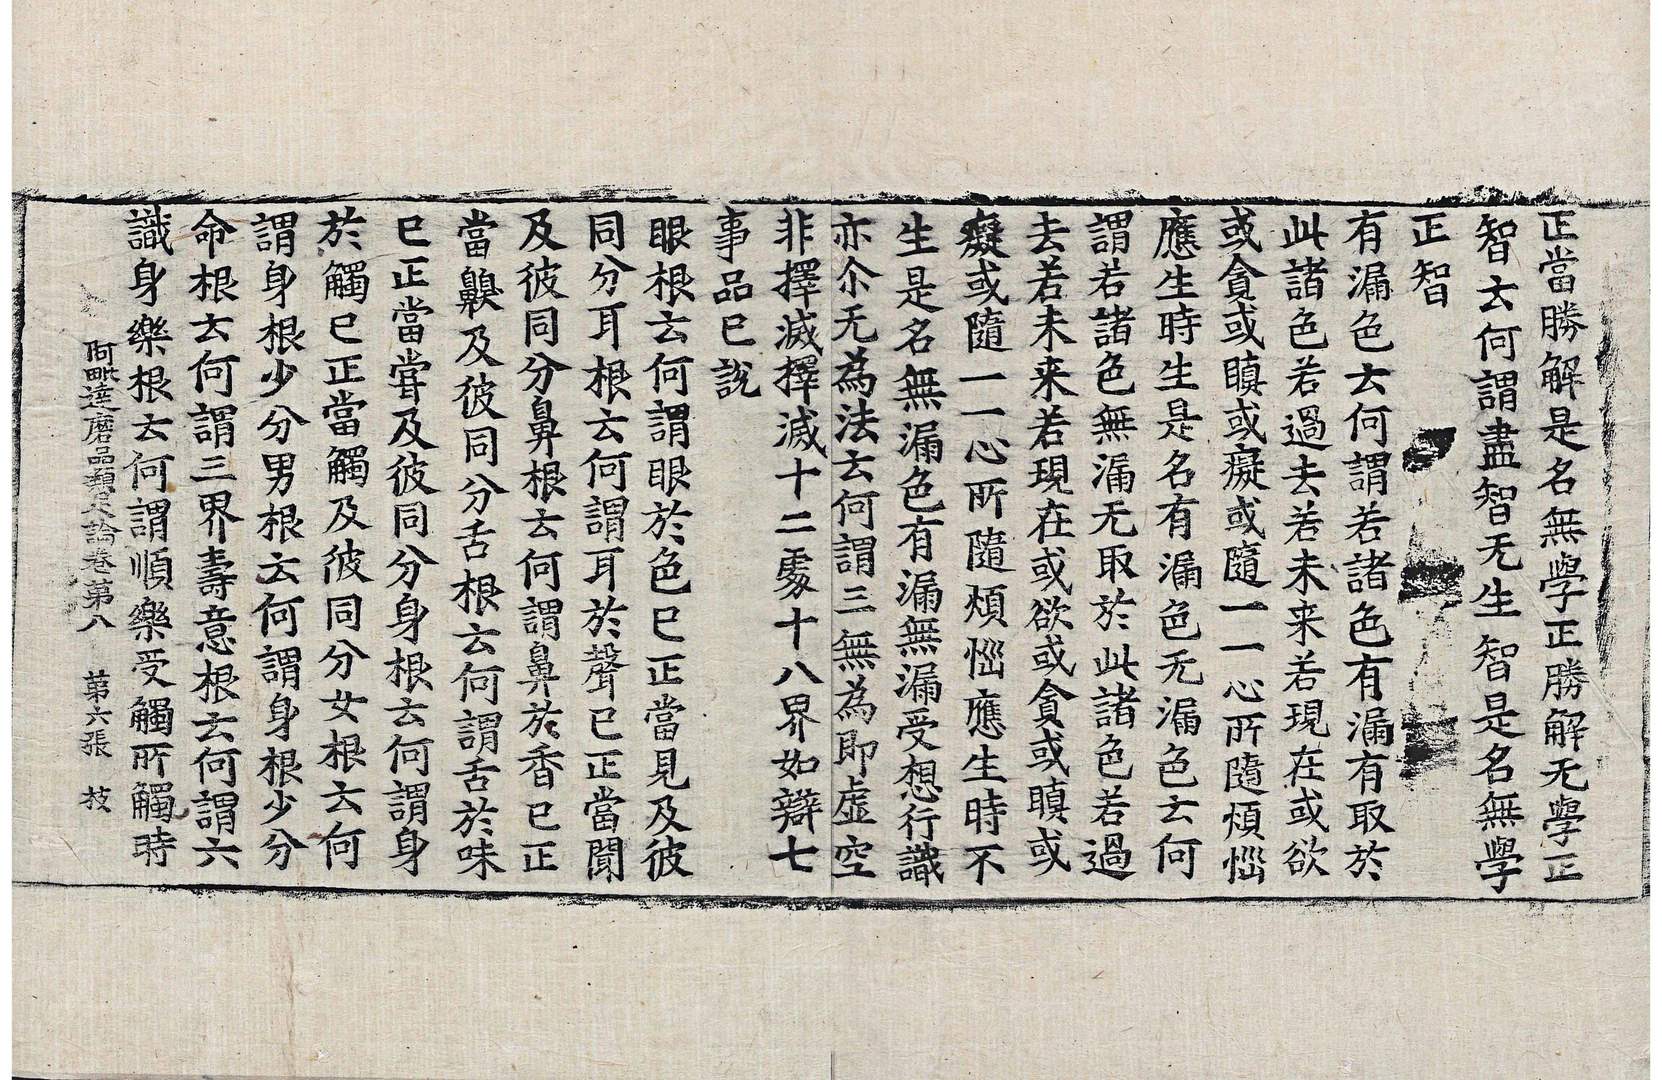 正當勝解是名無學正勝解无學正
智云何謂盡智无生智是名無學
正智
有漏色云何謂若諸色有漏有取於
此諸色若過去若未来若現在或欲
或貪或瞋或癡或隨一一心所隨煩惱
應生時生是名有漏色无漏色云何
謂若諸色無漏无取於此諸色若過
去若未来若現在或欲或貪或瞋或
癡或隨一一心所隨煩惱應生時不
生是名無漏色有漏無漏受想行識
亦尒无為法云何謂三無為即虛空
非擇滅擇滅十二處十八界如辯七
事品已說
眼根云何謂眼於色已正當見及彼
同分耳根云何謂耳於聲已正當聞
及彼同分鼻根云何謂鼻於香已正
當齅及彼同分舌根云何謂舌於味
已正當嘗及彼同分身根云何謂身
於觸已正當觸及彼同分女根云何
謂身根少分男根云何謂身根少分
命根云何謂三界壽意根云何謂六
識身樂根云何謂順樂受觸所觸時
阿毗達磨品類足論卷第八 第六張 技